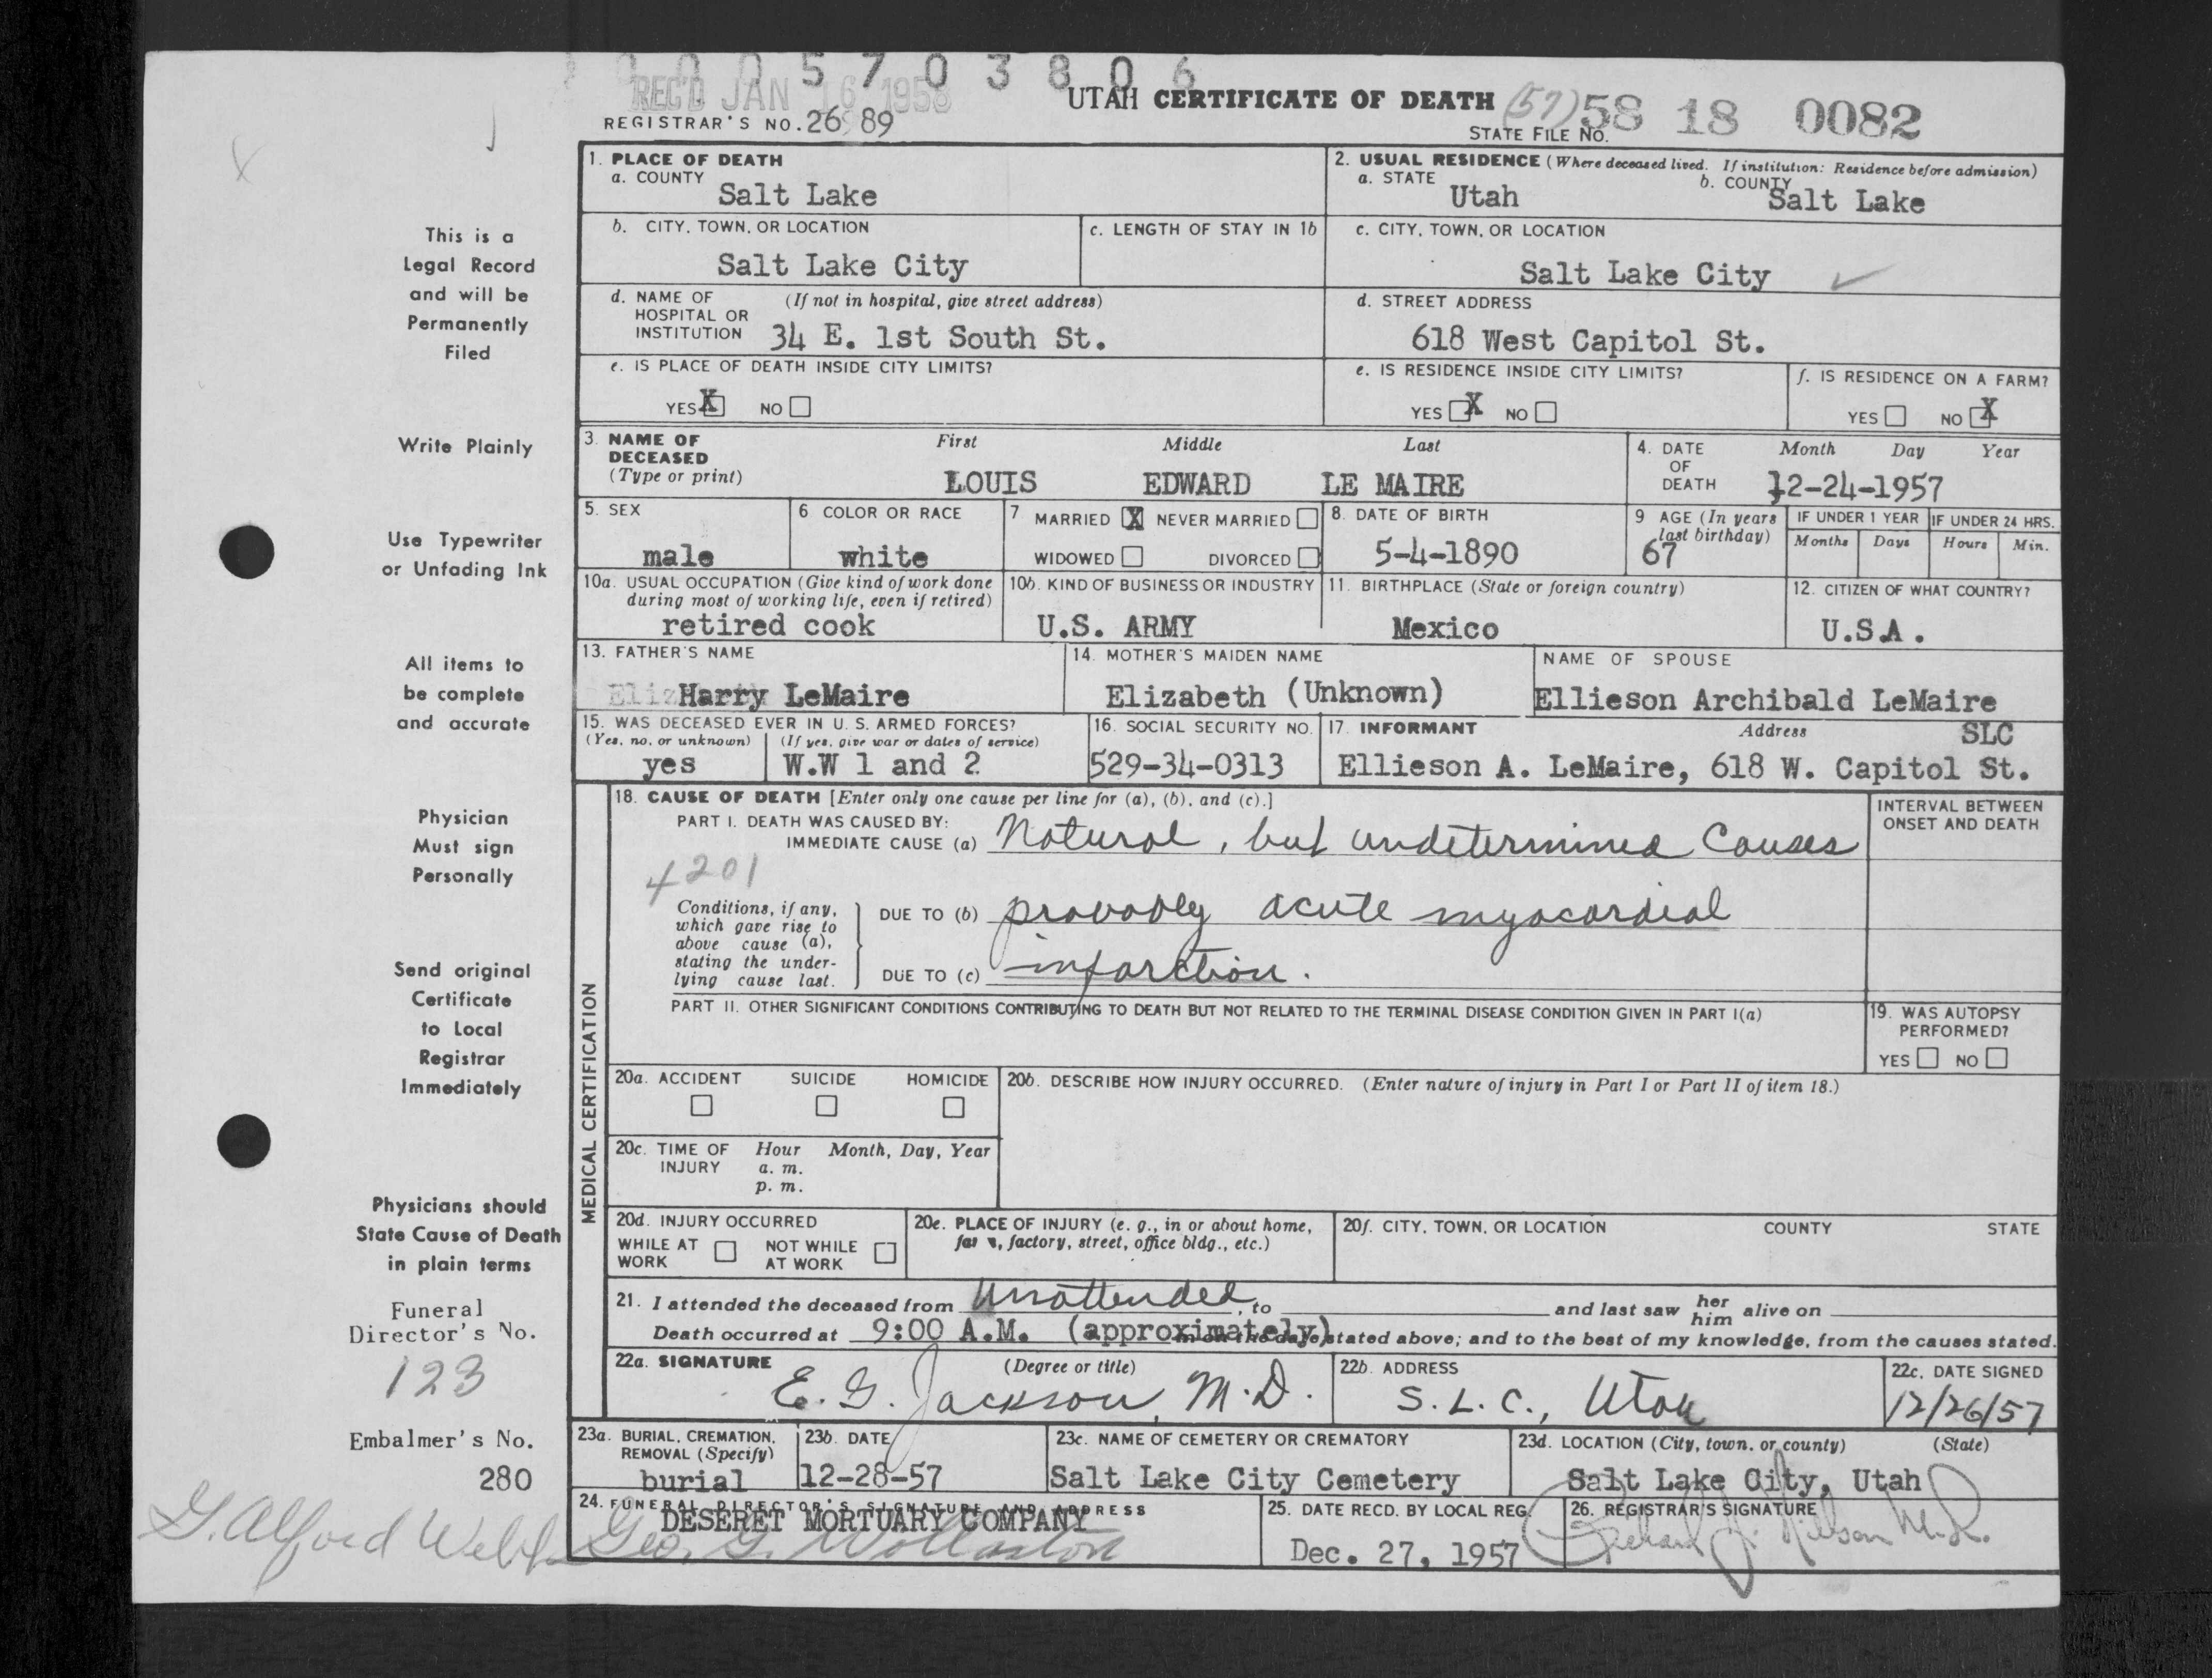 0 0 0 5 7 0 3 8 0 6
REC'D JAN 16 1958
UTAH CERTIFICATE OF DEATH (57) 58 18 0082
REGISTRAR'S NO. 26 89
STATE FILE NO.
1. PLACE OF DEATH
a. COUNTY
Salt Lake
2. USUAL RESIDENCE (Where deceased lived. If institution: Residence before admission)
a. STATE
Utah
b. COUNTY
Salt Lake
This is a
Legal Record
and will be
Permanently
Filed
b. CITY, TOWN, OR LOCATION
Salt Lake City
c. LENGTH OF STAY IN 1b
c. CITY, TOWN, OR LOCATION
Salt Lake City
d. NAME OF HOSPITAL OR INSTITUTION
(If not in hospital, give street address)
34 E. 1st South St.
d. STREET ADDRESS
618 West Capitol St.
e. IS PLACE OF DEATH INSIDE CITY LIMITS?
YES X NO
e. IS RESIDENCE INSIDE CITY LIMITS?
YES X NO
f. IS RESIDENCE ON A FARM?
YES NO X
Write Plainly
3. NAME OF DECEASED
(Type or print)
First Middle Last
LOUIS EDWARD LE MAIRE
4. DATE OF DEATH
Month Day Year
12-24-1957
Use Typewriter
or Unfading Ink
5. SEX
male
6 COLOR OR RACE
white
7 MARRIED X NEVER MARRIED
WIDOWED DIVORCED
8. DATE OF BIRTH
5-4-1890
9 AGE (In years last birthday)
67
IF UNDER 1 YEAR
Months Days
IF UNDER 24 HRS.
Hours Min.
10a. USUAL OCCUPATION (Give kind of work done
during most of working life, even if retired)
retired cook
10b. KIND OF BUSINESS OR INDUSTRY
U.S. ARMY
11. BIRTHPLACE (State or foreign country)
Mexico
12. CITIZEN OF WHAT COUNTRY?
U.S.A.
All items to
be complete
and accurate
13. FATHER'S NAME
Harry LeMaire
14. MOTHER'S MAIDEN NAME
Elizabeth (Unknown)
NAME OF SPOUSE
Ellieson Archibald LeMaire
15. WAS DECEASED EVER IN U. S. ARMED FORCES?
(Yes, no, or unknown) (If yes, give war or dates of service)
yes W.W 1 and 2
16. SOCIAL SECURITY NO.
529-34-0313
17. INFORMANT Address SLC
Ellieson A. LeMaire, 618 W. Capitol St.
Physician
Must sign
Personally
MEDICAL CERTIFICATION
18. CAUSE OF DEATH [Enter only one cause per line for (a), (b), and (c).]
PART I. DEATH WAS CAUSED BY:
IMMEDIATE CAUSE (a) Natural, but undetermined Causes
INTERVAL BETWEEN
ONSET AND DEATH
4201
Conditions, if any,
which gave rise to
above cause (a),
stating the under-
lying cause last.
DUE TO (b) provobly acute myocardial
DUE TO (c) infarction.
Send original
Certificate
to Local
Registrar
Immediately
PART II. OTHER SIGNIFICANT CONDITIONS CONTRIBUTING TO DEATH BUT NOT RELATED TO THE TERMINAL DISEASE CONDITION GIVEN IN PART I(a)
19. WAS AUTOPSY
PERFORMED?
YES NO
20a. ACCIDENT SUICIDE HOMICIDE
20b. DESCRIBE HOW INJURY OCCURRED. (Enter nature of injury in Part I or Part II of item 18.)
20c. TIME OF INJURY
Hour Month, Day, Year
a. m.
p. m.
Physicians should
State Cause of Death
in plain terms
20d. INJURY OCCURRED
WHILE AT WORK
NOT WHILE AT WORK
20e. PLACE OF INJURY (e. g., in or about home,
farm, factory, street, office bldg., etc.)
20f. CITY, TOWN, OR LOCATION COUNTY STATE
21. I attended the deceased from Unattended, to and last saw her him alive on
Death occurred at 9:00 A.M. (approximately) m on the date stated above; and to the best of my knowledge, from the causes stated.
Funeral
Director's No.
123
22a. SIGNATURE (Degree or title)
E. G. Jackson, M.D.
22b. ADDRESS
S. L. C., Utah
22c. DATE SIGNED
12/26/57
Embalmer's No.
280
23a. BURIAL, CREMATION,
REMOVAL (Specify)
burial
23b. DATE
12-28-57
23c. NAME OF CEMETERY OR CREMATORY
Salt Lake City Cemetery
23d. LOCATION (City, town, or county) (State)
Salt Lake City, Utah
24. FUNERAL DIRECTOR'S SIGNATURE AND ADDRESS
DESERET MORTUARY COMPANY
G. Alford Webb Geo. G. Wollaston
25. DATE RECD. BY LOCAL REG.
Dec. 27, 1957
26. REGISTRAR'S SIGNATURE